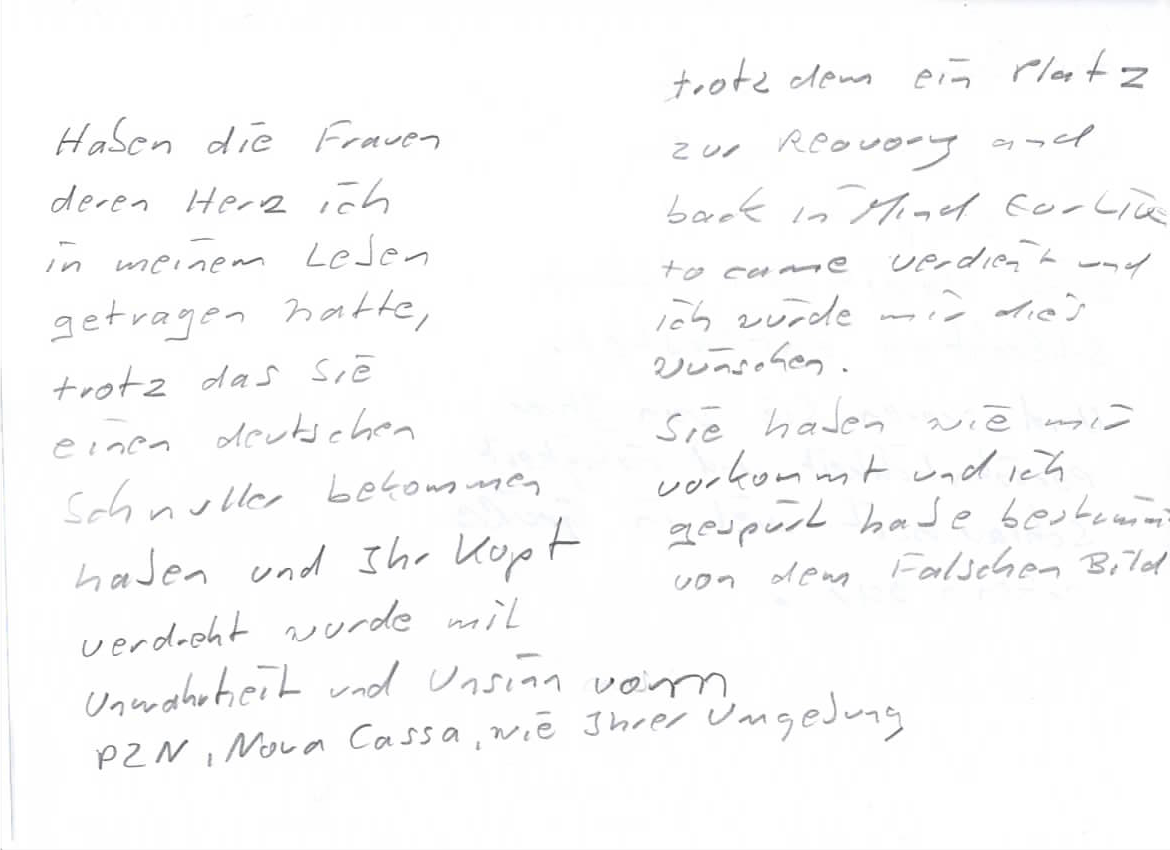 Haben die Frauen
deren Herz ich
in meinem Leben
getragen hatte,
trotz das Sie
einen deutschen
Schnuller bekommen
haben und Ihr Kopf
verdreht wurde mit
Unwahrheit und Unsinn vom
PZN, Nova Cassa, wie Ihrer Umgebung
trotz dem ein Platz
zur Reovory and
back in Mind
to came verdient und
ich würde mir dies
wünschen.
Sie haben wie mir
vorkommt und ich
gespürt habe bestimmt
von dem Falschen Bild